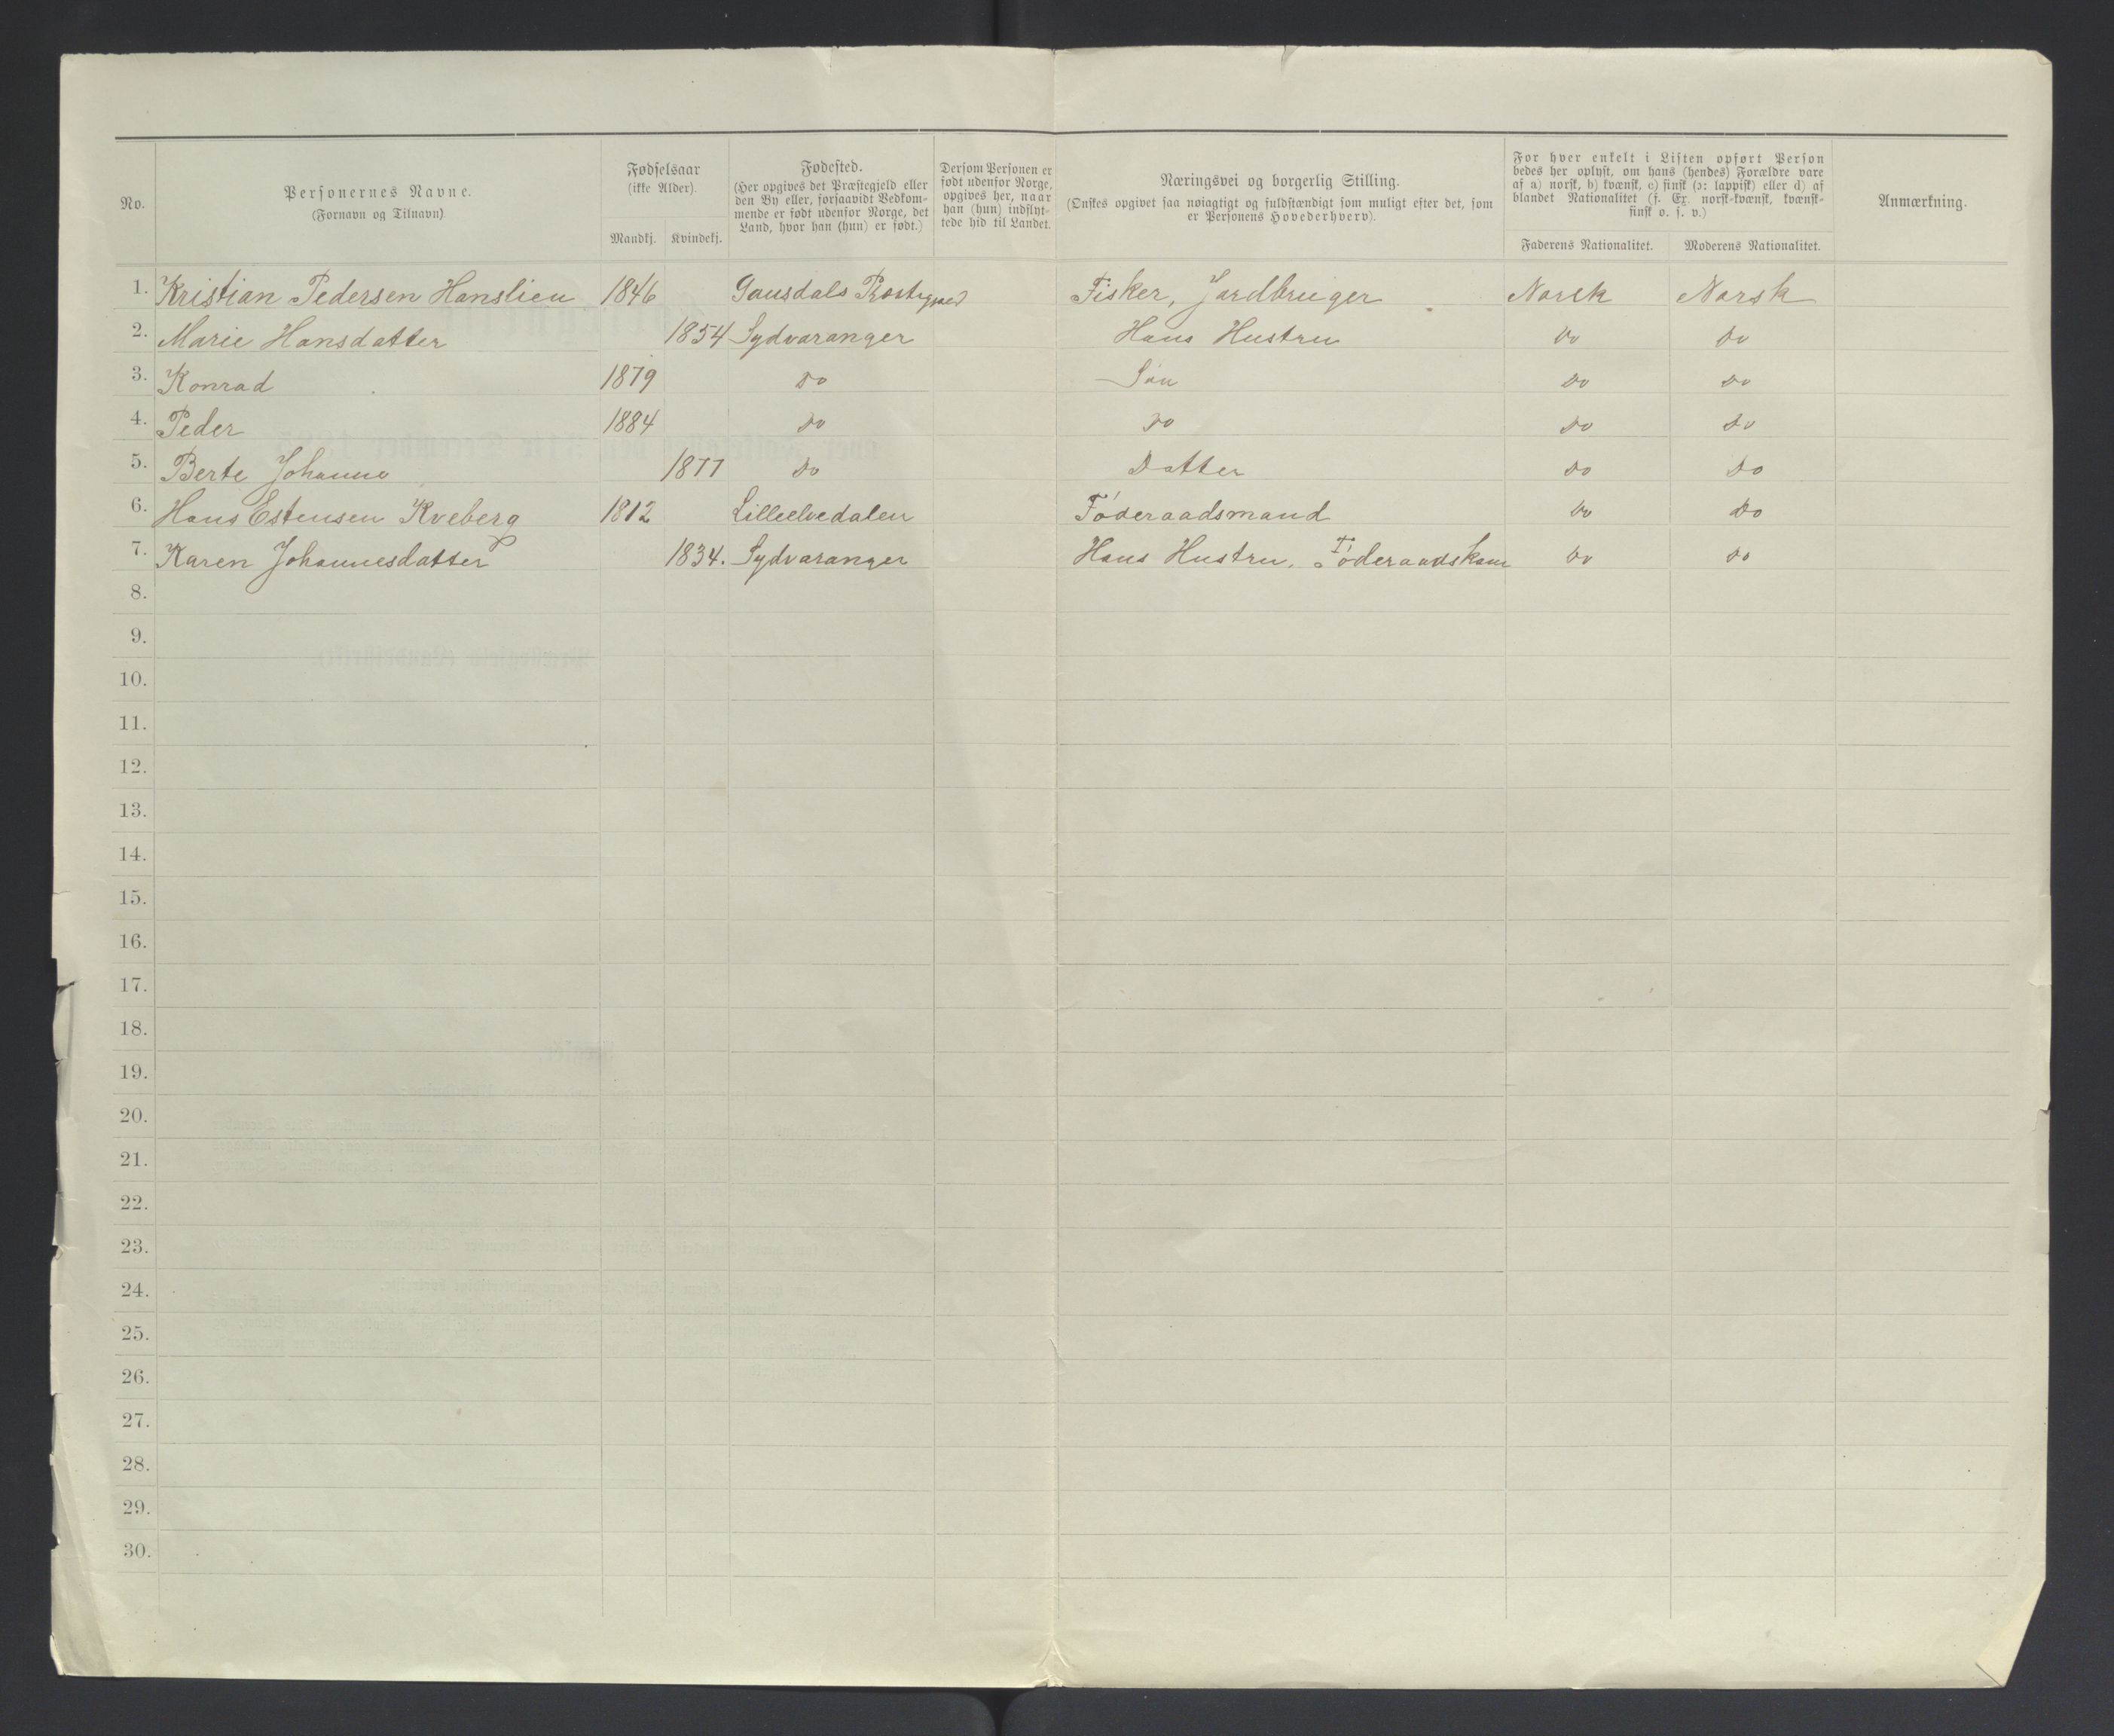 No.
Personernes Navne.
(Fornavn og Tilnavn)
Fødselsaar
(ikke Alder).
Mandkj. Kvindekj.
Fødested.
(Her opgives det Præstegjeld eller
den By eller, forsaavidt Vedkom-
mende er født udenfor Norge, det
Land, hvor han (hun) er født.)
Dersom Personen er
født udenfor Norge,
opgives her, naar
han (hun) indflyt-
tede hid til Landet.
Næringsvei og borgerlig Stilling.
(Ønskes opgivet saa nøiagtigt og fuldstændigt som muligt efter det, som
er Personens Hovederhverv).
For hver enkelt i Listen opført Person
bedes her oplyst, om hans (hendes) Forældre vare
af a) norsk, b) kvænsk, c) finsk (ɔ: lappisk) eller d) af
blandet Nationalitet (f. Ex. norsk-kvænsk, kvænsk-
finsk o. s. v.)
Faderens Nationalitet. Moderens Nationalitet.
Anmærkning.
1. Kristian Pedersen Hanslien 1846 Gausdals Fisker, Jordbruger Norsk Norsk
2. Marie Hansdatter 1854 Sydvaranger Hans Hustru Do Do
3. Konrad 1879 Do Søn Do Do
4. Peder 1884 Do Do Do Do
5. Berte Johanne 1877 Do Datter Do Do
6. Hans Estensen Kveberg 1812 Lilleelvedalen Føderaadsmand Do Do
7. Karen Johannesdatter 1834. Sydvaranger Hans Hustru, Føderaadskone Do Do
8.
9.
10.
11.
12.
13.
14.
15.
16.
17.
18.
19.
20.
21.
22.
23.
24.
25.
26.
27.
28.
29.
30.